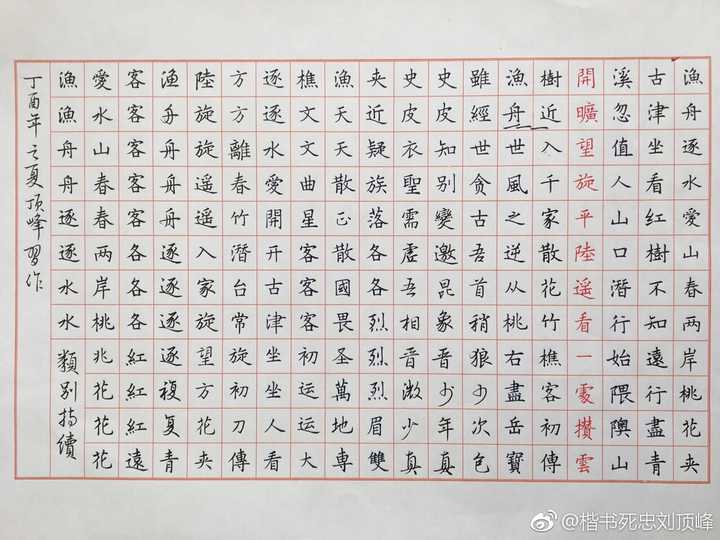 漁舟逐水愛山春兩岸桃花夾
古津坐看紅樹不知遠行盡青
溪忽值人山口潛行始隈隩山
開曠望旋平陸遥看一處攢雲
樹近入千家散花竹樵客初傳
漁舟世風之逆从桃右盡岳寶
雖經世貪古吾首稍狼少次包
史皮知別變邀昆象晋少年真
史皮衣聖需虛吾相晋激少真
夾近疑族落各各烈烈烈眉雙
漁天天散正散國畏圣萬地専
樵文文曲星客客客初運運大
逐逐水愛開开古津坐坐人看
方方離春竹潛台常旋初刀傳
陸旋旋遥遥入家旋望方花夾
漁舟舟舟舟逐逐逐逐複复青
客客客客客各各各紅紅紅遠
愛水山春春兩岸桃兆花花花
漁漁舟舟逐逐水水類別持續
丁酉年之夏顶峰習作
@楷书死忠刘顶峰